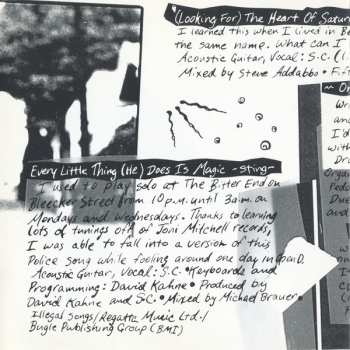 (Looking For) The Heart Of Satur
I learned this when I lived in B
the same name. What can I
Acoustic Guitar, Vocal: S.C.
Mixed by Steve Addabbo •
Every Little Thing (He) Does Is Magic -Sting-
I used to play solo at The Bitter End on
Bleecker Street from 10 p.m. until 3 a.m. on
Mondays and Wednesdays. Thanks to learning
lots of tunings off of Joni Mitchell records,
I was able to fall into a version of this
Police song while fooling around one day in
Acoustic Guitar, Vocal: S.C. • Keyboards and
Programming: David Kahne • Produced by
David Kahne and S.C. • Mixed by Michael Brauer •
Illegal Songs/Regatta Music Ltd./
Bugle Publishing Group (BMI)
Wr
and
I'd
with
Dr
Orga
Peda
Due
and